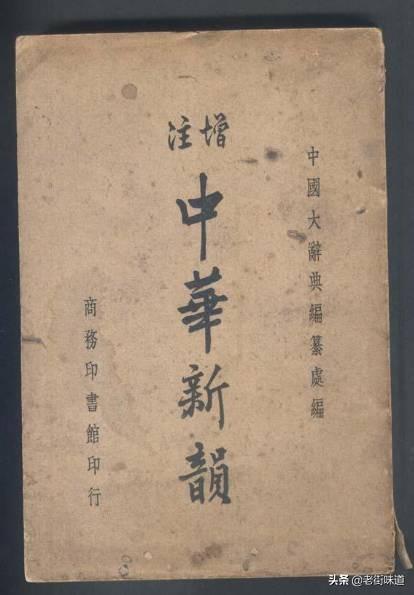 中國大辭典編纂處編
增注
中華新韻
商務印書館印行
头条 @老街味道